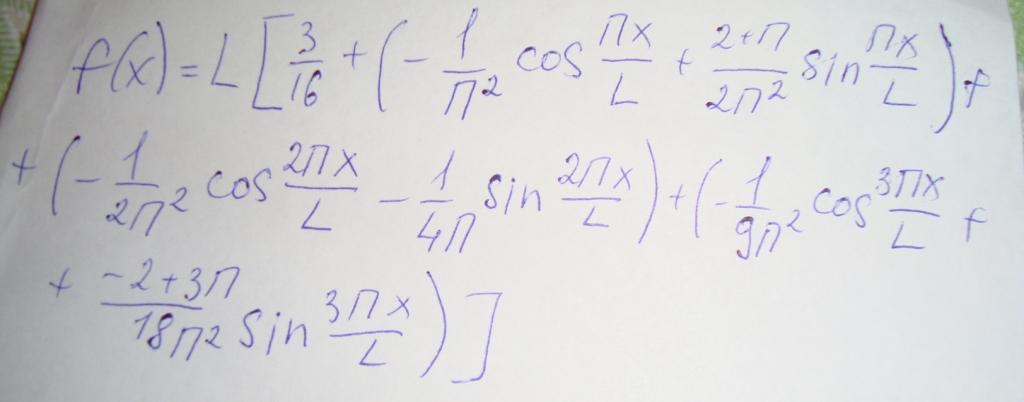 f(x) = L [ 3/16 + ( - 1/П² cos Пx/L + 2+П/2П² sin Пx/L ) +
+ ( - 1/2П² cos 2Пx/L - 1/4П sin 2Пx/L ) + ( - 1/9П² cos 3Пx/L +
+ -2+3П/18П² sin 3Пx/L ) ]